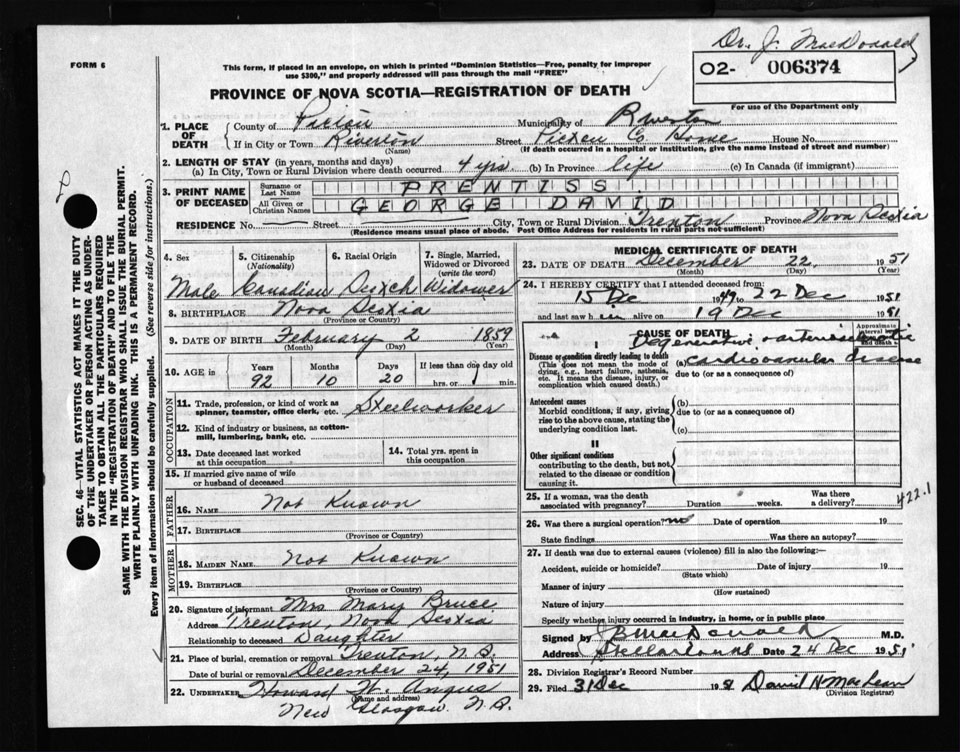 Dr. J. MacDonald
FORM 6
This form, if placed in an envelope, on which is printed "Dominion Statistics—Free, penalty for improper
use $300," and properly addressed will pass through the mail "FREE"
02- 006374
For use of the Department only
PROVINCE OF NOVA SCOTIA—REGISTRATION OF DEATH
1. PLACE OF DEATH County of Pictou Municipality of Riverton
If in City or Town Riverton (Name) Street Pictou Co Home House No.
(If death occurred in a hospital or institution, give the name instead of street and number)
2. LENGTH OF STAY (in years, months and days)
(a) In City, Town or Rural Division where death occurred 4 yrs. (b) In Province life (c) In Canada (if immigrant)
3. PRINT NAME OF DECEASED Surname or Last Name PRENTISS
All Given or Christian Names GEORGE DAVID
RESIDENCE No. Street City, Town or Rural Division Trenton Province Nova Scotia
(Residence means usual place of abode. Post Office Address for residents in rural parts not sufficient)
4. Sex 5. Citizenship (Nationality) 6. Racial Origin 7. Single, Married, Widowed or Divorced (write the word)
Male Canadian Scotch Widower
8. BIRTHPLACE Nova Scotia
(Province or Country)
9. DATE OF BIRTH February 2 1859
(Month) (Day) (Year)
10. AGE in Years Months Days If less than one day
92 10 20 hrs. or min.
OCCUPATION
11. Trade, profession, or kind of work as spinner, teamster, office clerk, etc. Steelworker
12. Kind of industry or business, as cotton-mill, lumbering, bank, etc.
13. Date deceased last worked at this occupation 14. Total yrs. spent in this occupation
15. If married give name of wife or husband of deceased
FATHER
16. NAME Not Known
17. BIRTHPLACE
(Province or Country)
MOTHER
18. MAIDEN NAME Not Known
19. BIRTHPLACE
(Province or Country)
20. Signature of informant Mrs Mary Bruce
Address Trenton, Nova Scotia
Relationship to deceased Daughter
21. Place of burial, cremation or removal Trenton, N.S.
Date of burial or removal December 24, 1951
22. UNDERTAKER Howard W. Angus
(Name and address)
New Glasgow N.S.
MEDICAL CERTIFICATE OF DEATH
23. DATE OF DEATH December 22, 1951
(Month) (Day) (Year)
24. I HEREBY CERTIFY that I attended deceased from:
15 Dec 1949 to 22 Dec 1951
and last saw h im alive on 19 Dec 1951
CAUSE OF DEATH
Approximate interval between onset and death
Degenerative arteriosclerotic
Disease or condition directly leading to death (a) cardiovascular disease
(This does not mean the mode of dying, e.g., heart failure, asthenia, etc. It means the disease, injury, or complication which caused death.
due to (or as a consequence of)
Antecedent causes
Morbid conditions, if any, giving rise to the above cause, stating the underlying condition last.
(b)
due to (or as a consequence of)
(c)
II
Other significant conditions
contributing to the death, but not related to the disease or condition causing it.
25. If a woman, was the death associated with pregnancy? Duration weeks. Was there a delivery?
422.1
26. Was there a surgical operation? no Date of operation 19
State findings Was there an autopsy?
27. If death was due to external causes (violence) fill in also the following:—
Accident, suicide or homicide? Date of injury 19
(State which)
Manner of injury
(How sustained)
Nature of injury
Specify whether injury occurred in industry, in home, or in public place
Signed by JB MacDonald M.D.
Address Stellarton NS Date 24 Dec 1951
28. Division Registrar's Record Number
29. Filed 31 Dec 1951 David H MacLean
(Division Registrar)
SEC. 46—VITAL STATISTICS ACT MAKES IT THE DUTY
OF THE UNDERTAKER OR PERSON ACTING AS UNDER-
TAKER TO OBTAIN ALL THE PARTICULARS REQUIRED
IN THE "REGISTRATION OF DEATH" AND TO FILE THE
SAME WITH THE DIVISION REGISTRAR WHO SHALL ISSUE THE BURIAL PERMIT.
WRITE PLAINLY WITH UNFADING INK. THIS IS A PERMANENT RECORD.
Every item of information should be carefully supplied. (See reverse side for instructions.)